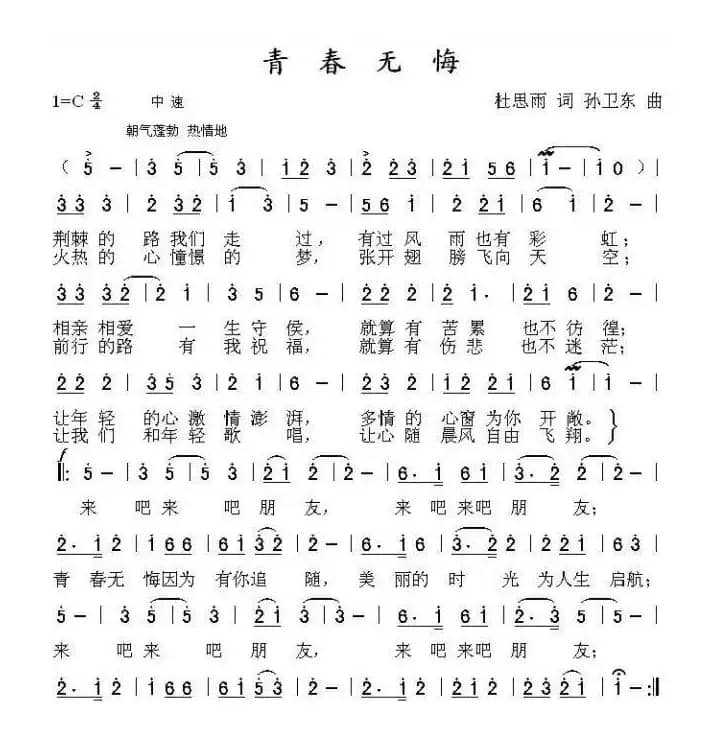 青 春 无 悔
1=C 2/4 中 速 杜思雨 词 孙卫东 曲
朝气蓬勃 热情地
( 5 - | 3 5 | 5 3 | 1 2 3 | 2 2 3 | 2 1 5 6 | 1 - | 1 0 ) |
3 3 3 | 2 3 2 | 1 3 | 5 - | 5 6 1 | 2 2 1 | 6 1 | 2 - |
荆棘 的 路 我们 走 过, 有过 风 雨也有 彩 虹;
火热 的 心 憧憬 的 梦, 张开 翅 膀飞向 天 空;
3 3 3 2 | 2 1 | 3 5 | 6 - | 2 2 2 | 2 1· | 2 1 6 | 2 - |
相亲 相爱 一 生 守 侯, 就算 有 苦 累 也不 彷 徨;
前行 的路 有 我 祝 福, 就算 有 伤 悲 也不 迷 茫;
2 2 2 | 3 5 3 | 2 1 | 6 - | 2 3 2 | 1 2 2 1 | 6 1 | 1 - |
让年 轻 的心 激 情 澎 湃, 多情 的 心窗 为你 开 敞。
让我 们 和年 轻 歌 唱, 让心 随 晨风 自由 飞 翔。
‖: 5 - | 3 5 | 5 3 | 2 1 2 | 2 - | 6· 1 | 6 1 | 3· 2 | 2 - |
来 吧 来 吧 朋 友, 来 吧 来吧 朋 友;
2· 1 2 | 1 6 6 | 6 1 3 2 | 2 - | 6· 1 6 | 3· 2 | 2 1 6 | 6 3 |
青 春无 悔因为 有你追 随, 美 丽的 时 光 为人生 启航;
5 - | 3 5 | 5 3 | 2 1 3 | 3 - | 6· 1 | 6 1 | 2· 3 | 5 - |
来 吧 来 吧 朋 友, 来 吧 来吧 朋 友;
2· 1 2 | 1 6 6 | 6 1 5 3 | 3 - | 2· 1 2 | 3· 2 | 2 3 2 1 | 1 - :‖